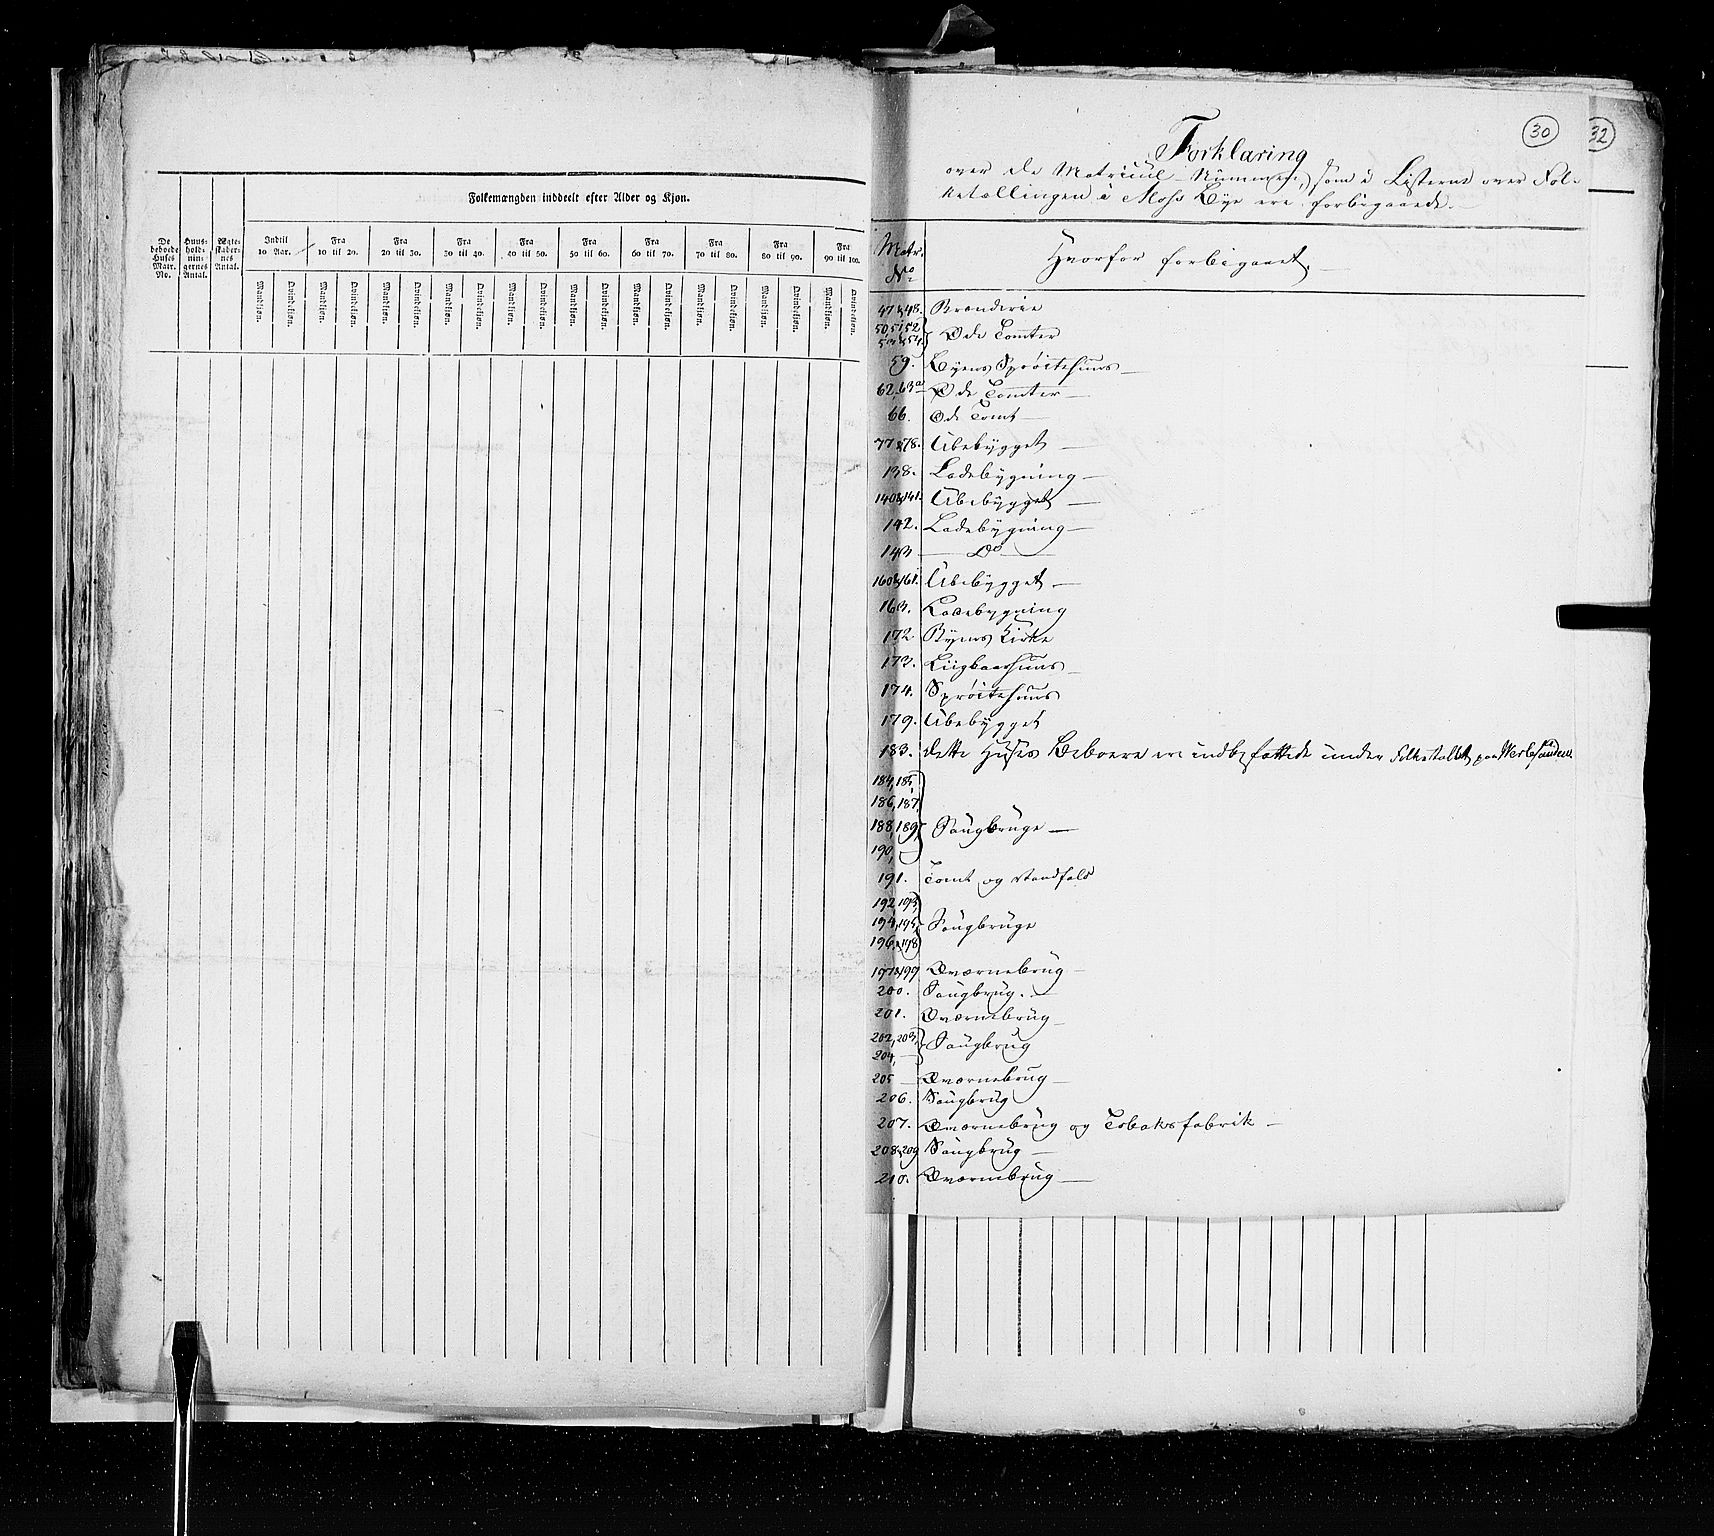 De beboede Huses Matr. No.
Huus-holdnin-gernes Antal.
Ægte-skaber-nes Antal.
Folkemængden inddeelt efter Alder og Kjøn.
Indtil 10 Aar.
Fra 10 til 20.
Fra 20 til 30.
Fra 30 til 40.
Fra 40 til 50.
Fra 50 til 60.
Fra 60 til 70.
Fra 70 til 80.
Fra 80 til 90.
Fra 90 til 100.
Mandkjøn. Qvindekjøn. Mandkjøn. Qvindekjøn. Mandkjøn. Qvindekjøn. Mandkjøn. Qvindekjøn. Mandkjøn. Qvindekjøn. Mandkjøn. Qvindekjøn. Mandkjøn. Qvindekjøn. Mandkjøn. Qvindekjøn. Mandkjøn. Qvindekjøn. Mandkjøn. Qvindekjøn.
30
32
Forklaring
over de Matricul-Nummere, som i Listerne over Fol-
ketællingen i Moss Bye ere forbigaaede.
Matr. No. Hvorfor forbigaaet.
47 & 48. Brænderie
50, 51, 52
53 & 54. Øde Tomter
59. Byens Sprøitehuus
62, 63a Øde Tomter
66. Øde Tomt
77 & 78. Ubebygget
138. Ladebygning
140 & 141. Ubebygget
142. Ladebygning
143 Do
160 & 161. Ubebygget
163. Ladebygning
172. Byens Kirke
173. Liigbaarhuus
174. Sprøitehuus
179. Ubebygget
183. dette Huses Beboere ere indbefattede under Folketallet paa Værlesanden
184, 185,
186, 187,
188, 189, Saugbruge
190,
191. Tomt og Vandfald
192, 193,
194, 195, Saugbruge
196, & 198
197 & 199 Qværnebrug
200. Saugbrug.
201. Qværnebrug
202, 203, Saugbrug
204,
205 Qværnebrug
206. Saugbrug
207. Qværnebrug og Tobaksfabrik
208 & 209 Saugbrug
210. Qværnebrug